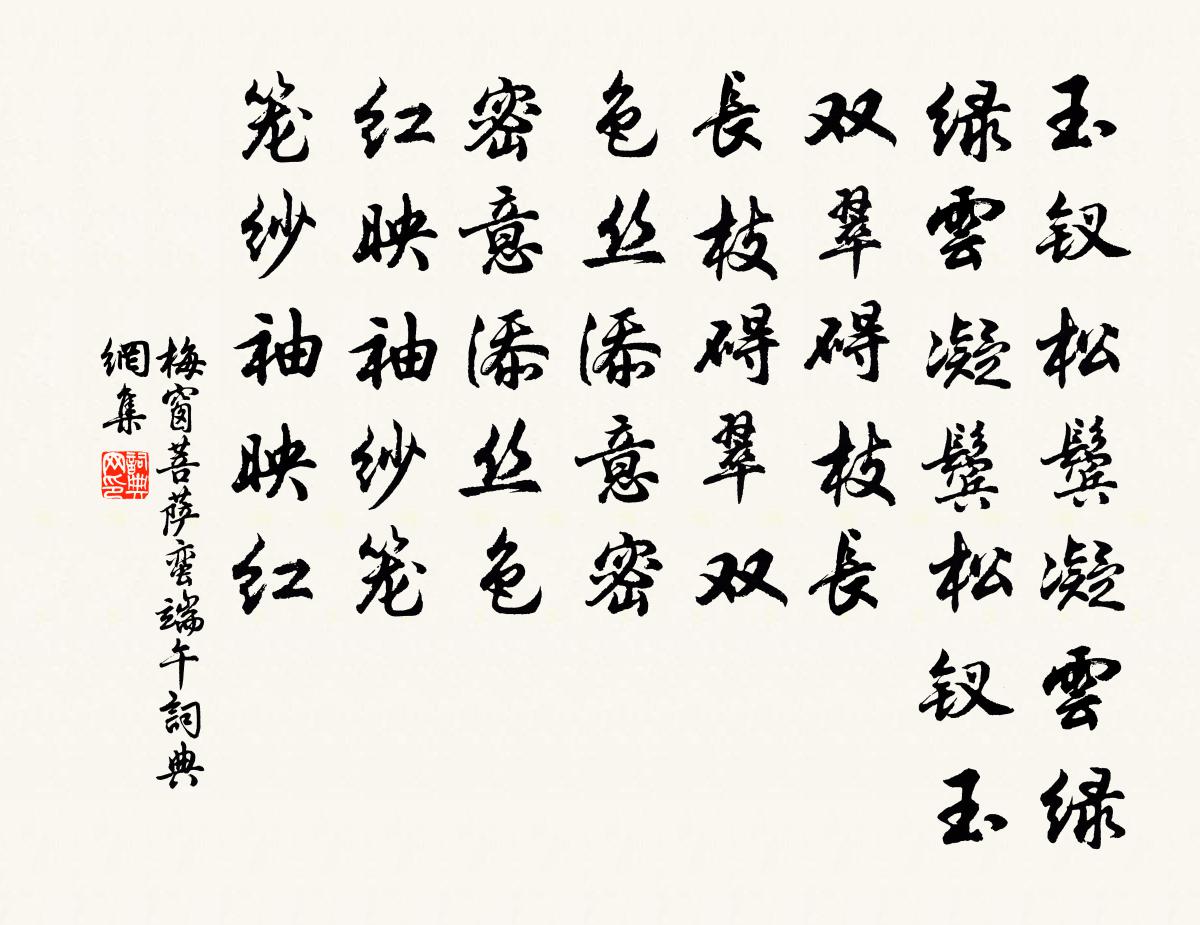 玉钗松鬓凝雲绿
绿雲凝鬓松钗玉
双翠碍枝長
長枝碍翠双
色丝添意密
密意添丝色
红映袖纱笼
笼纱袖映红
梅窗菩萨蛮端午詞典
網集
詞典網印